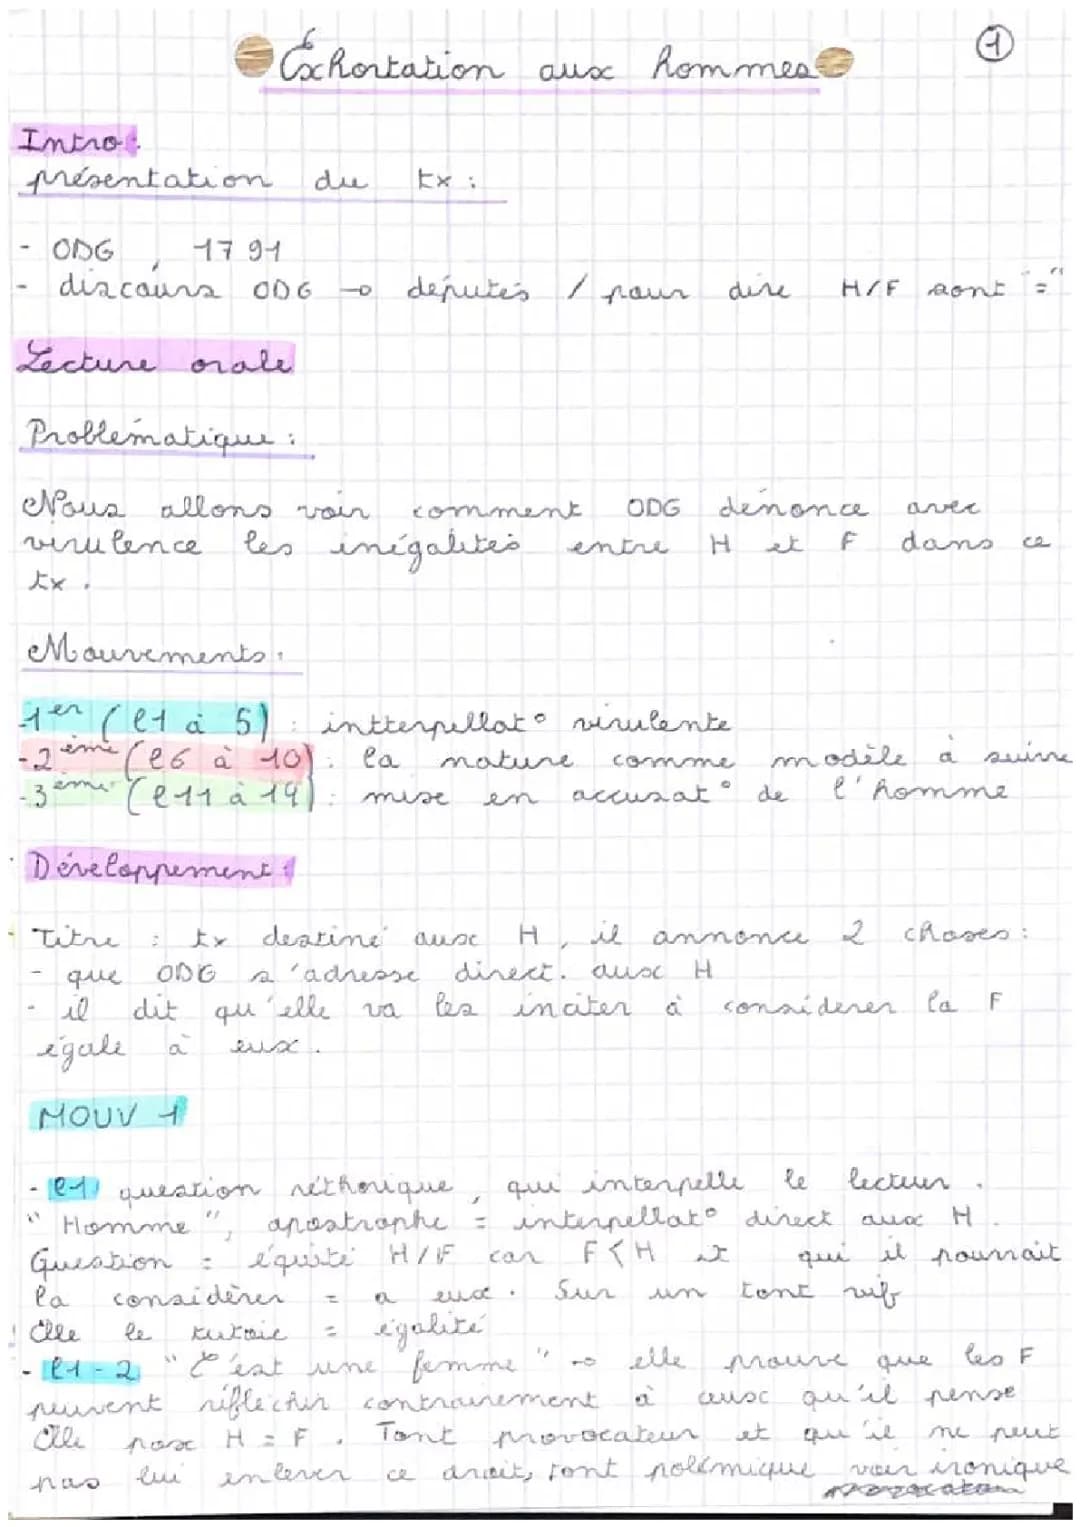 Exhortation aux hommes
1
Intro:
présentation du tx :
- ODG, 1791
- discours ODG → députés / pour dire H/F sont "="
Lecture orale
Problématique :
Nous allons voir comment ODG dénonce avec
virulence les inégalités entre H et F dans ce
tx.
Mouvements :
-1er (l1 à 5) : intterpellat° virulente
-2ème (l6 à 10) : la nature comme modèle à suivre
-3ème (l11 à 19) : mise en accusat° de l'homme
Développement :
- Titre : tx destiné aux H, il annonce 2 choses :
- que ODG s'adresse direct. aux H
- il dit qu'elle va les inciter à considerer la F
égale à eux.
MOUV 1
- l1 question réthorique, qui interpelle le lecteur.
"Homme", apostrophe = interpellat° direct aux H.
Question = équité H/F car F<H et qui il pourrait
la considèrer = a eux. Sur un tont vif
Elle le tutoie = égalité
- l1-2 "C'est une femme" → elle prouve que les F
peuvent réflechir contrairement à ceux qu'il pense
Elle pose H = F. Tont provocateur et qu'il ne peut
pas lui enlever ce droit, tont polémique voir ironique